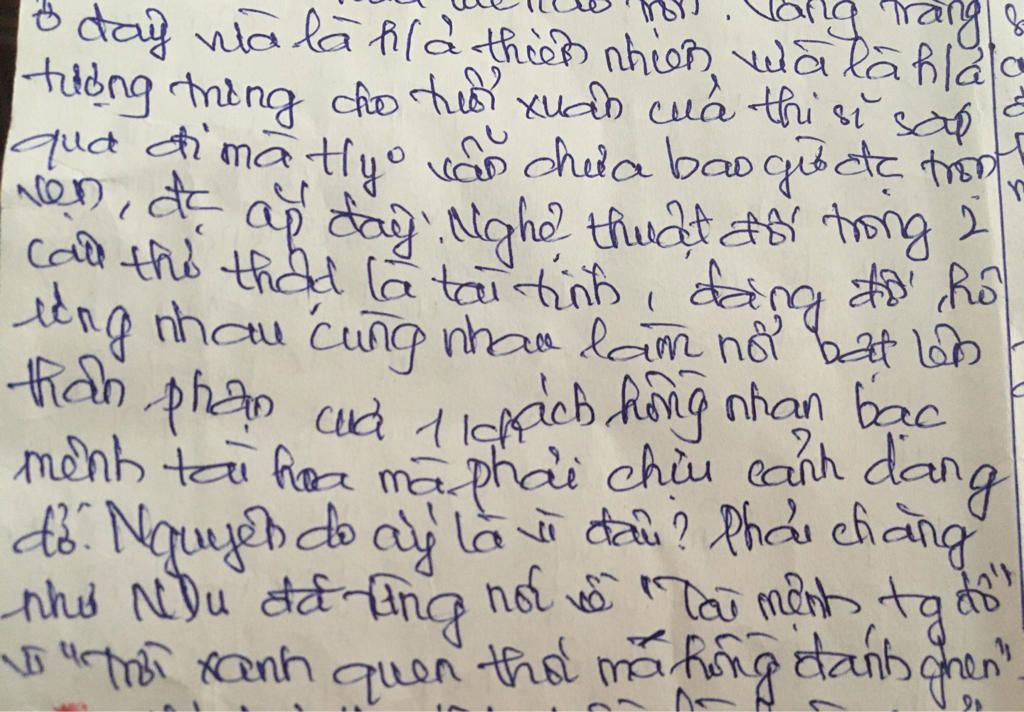 Vầng trăng
ở đây vừa là h/ả thiên nhiên, vừa là h/ả
tượng trưng cho tuổi xuân của thi sĩ sắp
qua đi mà t/yº vẫn chưa bao giờ đc trọn
vẹn, đc ắp đầy. Nghệ thuật đối trong 2
câu thơ thật là tài tình, đăng đối, hô
ứng nhau cùng nhau làm nổi bật lên
thân phận của 1 khách hồng nhan bạc
mệnh tài hoa mà phải chịu cảnh dang
dở. Nguyên do ấy là vì đâu? Phải chăng
như NDu đã từng nói về "Tài mệnh tg đố"
vì "Trời xanh quen thói má hồng đánh ghen"